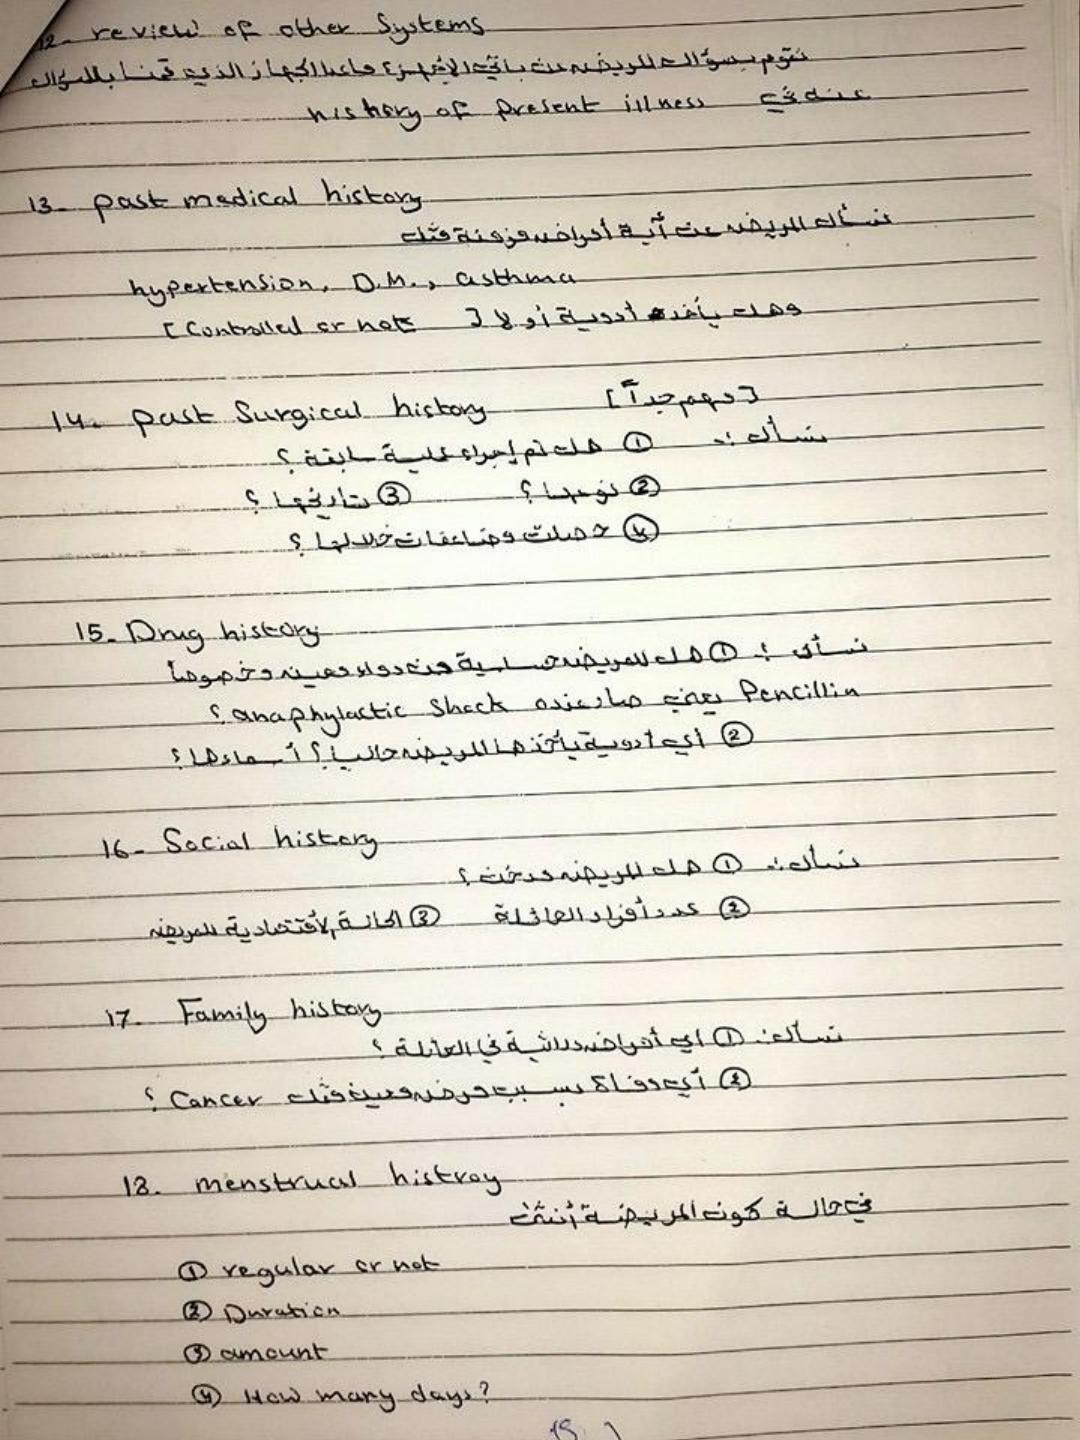 12- review of other Systems
نقوم بسؤال المريض عن باقي الأجهزة ماعدا الجهاز الذي قمنا بالسؤال
عنه في history of present illness
13- past medical history
نسأل المريض عن أية أمراض مزمنة مثل
hypertension, D.M., asthma
وهل يأخذ أدوية أو لا [Controlled or not]
14. past Surgical history [مهم جداً]
نسأل :- ① هل تم إجراء عملية سابقة ؟
② نوعها ؟ ③ تاريخها ؟
④ حصلت مضاعفات خلالها ؟
15- Drug history
نسأل :- ① هل للمريض حساسية من دواء معين وخصوصاً
Pencillin يعني صار عنده anaphylactic Shock ؟
② أي أدوية يأخذها المريض حالياً ؟ أسماءها ؟
16- Social history
نسأل :- ① هل المريض مدخن ؟
② عدد أفراد العائلة ③ الحالة الأقتصادية للمريض
17. Family history
نسأل :- ① اي أمراض وراثية في العائلة ؟
② أي وفاة بسبب مرض معين مثل Cancer ؟
18. menstrual histroy
في حالة كون المريضة أنثى
① regular or not
② Duration
③ amount
④ How many days?